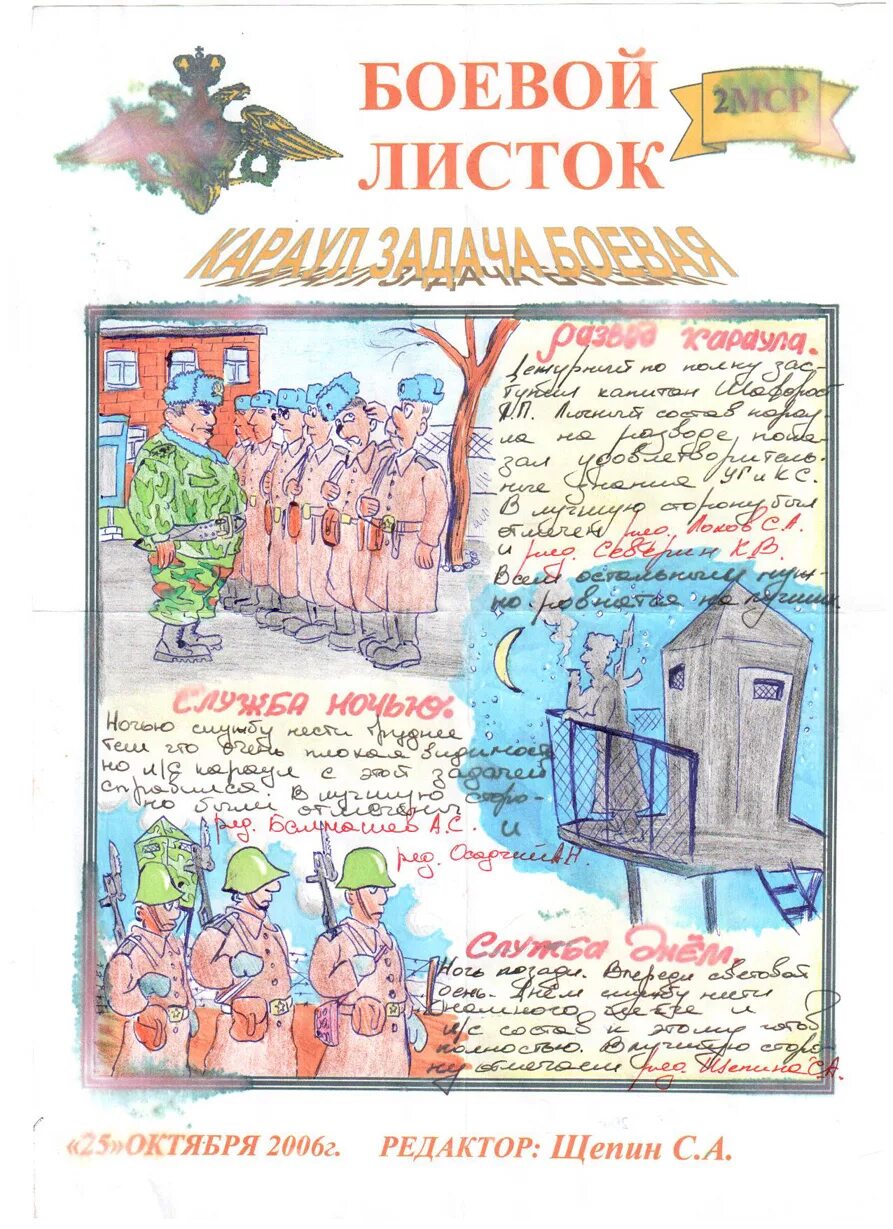 БОЕВОЙ
ЛИСТОК
2МСР
КАРАУЛ ЗАДАЧА БОЕВАЯ
Развод караула.
Дежурный по полку зас-
тупил капитан
Личный состав карау-
ла на разводе пока-
зал удовлетворитель-
ные знания УГиКС.
В лучшую сторону был
отмечен ряд. Лохов С.А.
и ряд. Северин К.В.
Всем остальным нуж-
но ровнятся на лучших
Служба ночью.
Ночью службу нести труднее
тем что очень плохая видимость
но л/с караул с этой задачей
справился. В лучшую сторо-
но были отмечены
ряд. Балмашев А.С. и
ряд. Осадчий А.Н.
Служба днём.
Ночь позади. Впереди световой
день. Днём службу нести
немного легче и
л/с состав к этому готов
полностью. В лучшую сторо-
ну отмечаем ряд. С.А.
«25»ОКТЯБРЯ 2006г. РЕДАКТОР: Щепин С.А.